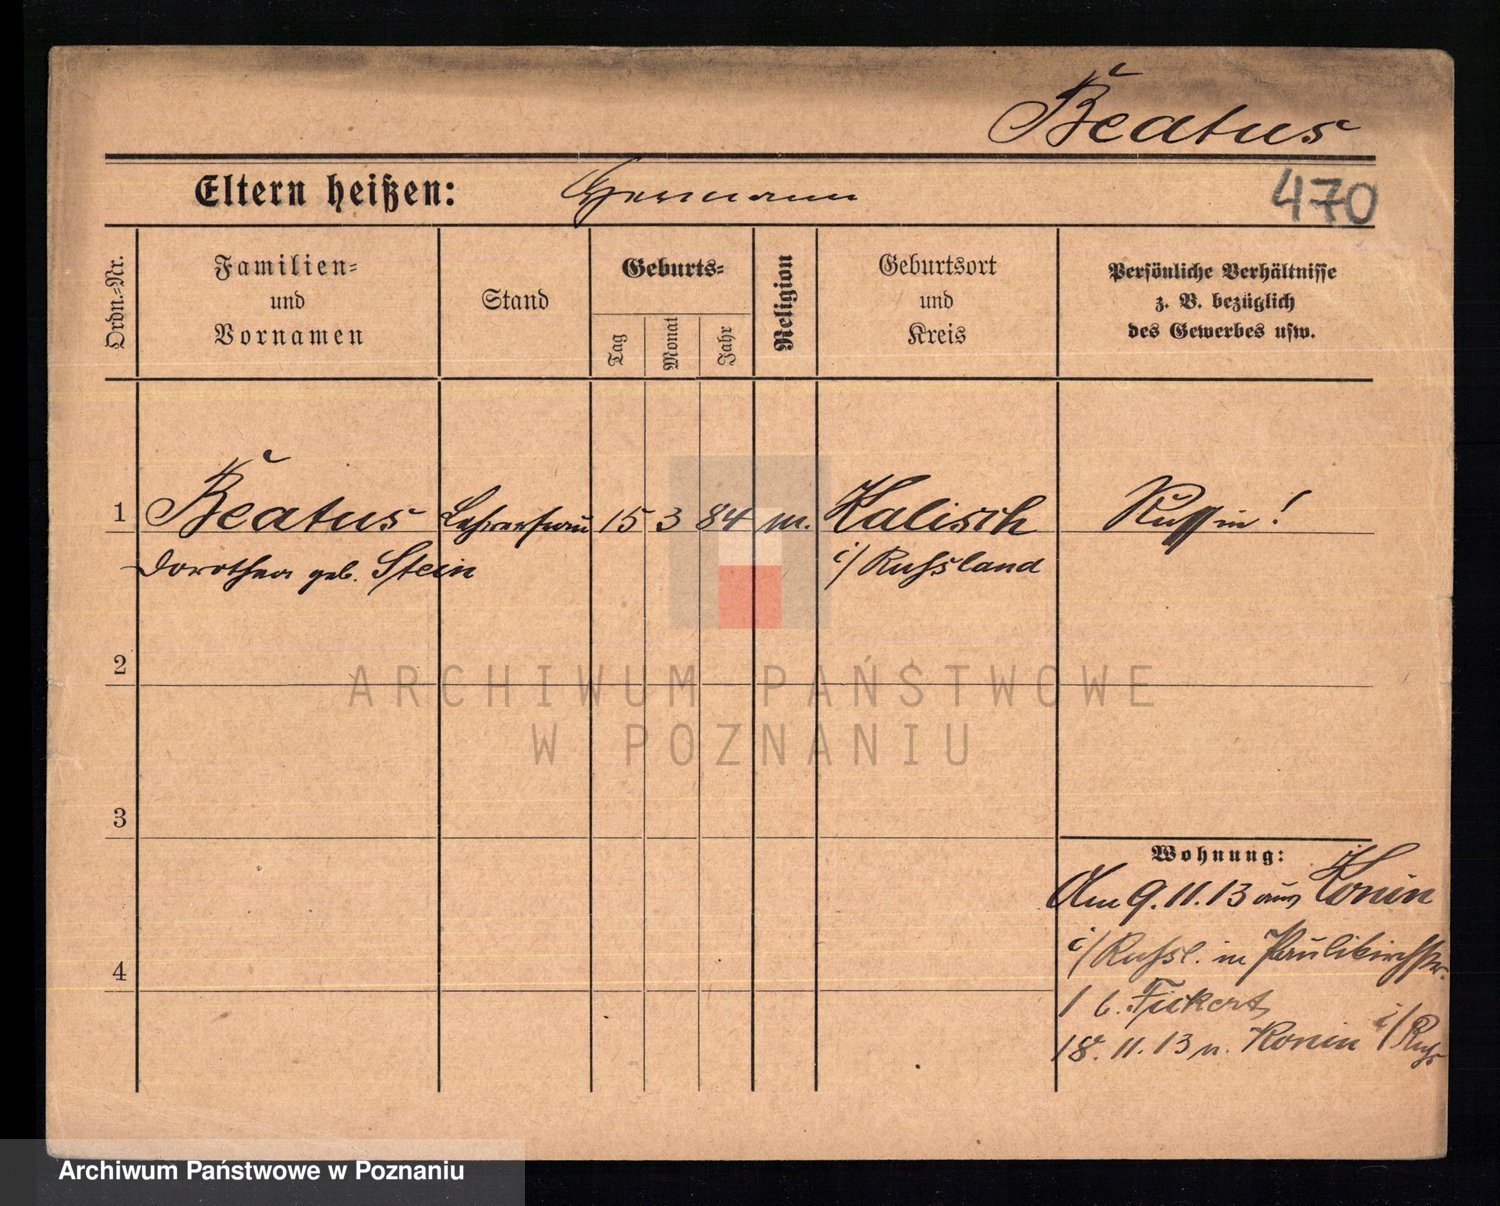 Beatus
Eltern heißen: Hermann
470
Ordn.-Nr.
Familien-
und
Vornamen
Stand
Geburts-
Tag
Monat
Jahr
Religion
Geburtsort
und
Kreis
Persönliche Verhältnisse
z. B. bezüglich
des Gewerbes usw.
1 Beatus Lehrersfrau 15 3 84 m. Kalisch Russin!
Dorothea geb. Stein i/Russland
2
ARCHIWUM PAŃSTWOWE
W POZNANIU
3
Wohnung:
Am 9.11.13 aus Konin
i/Russl. in Paulikirchstr.
4
1 b. Fickert
18.11.13 n. Konin i/Russ
Archiwum Państwowe w Poznaniu